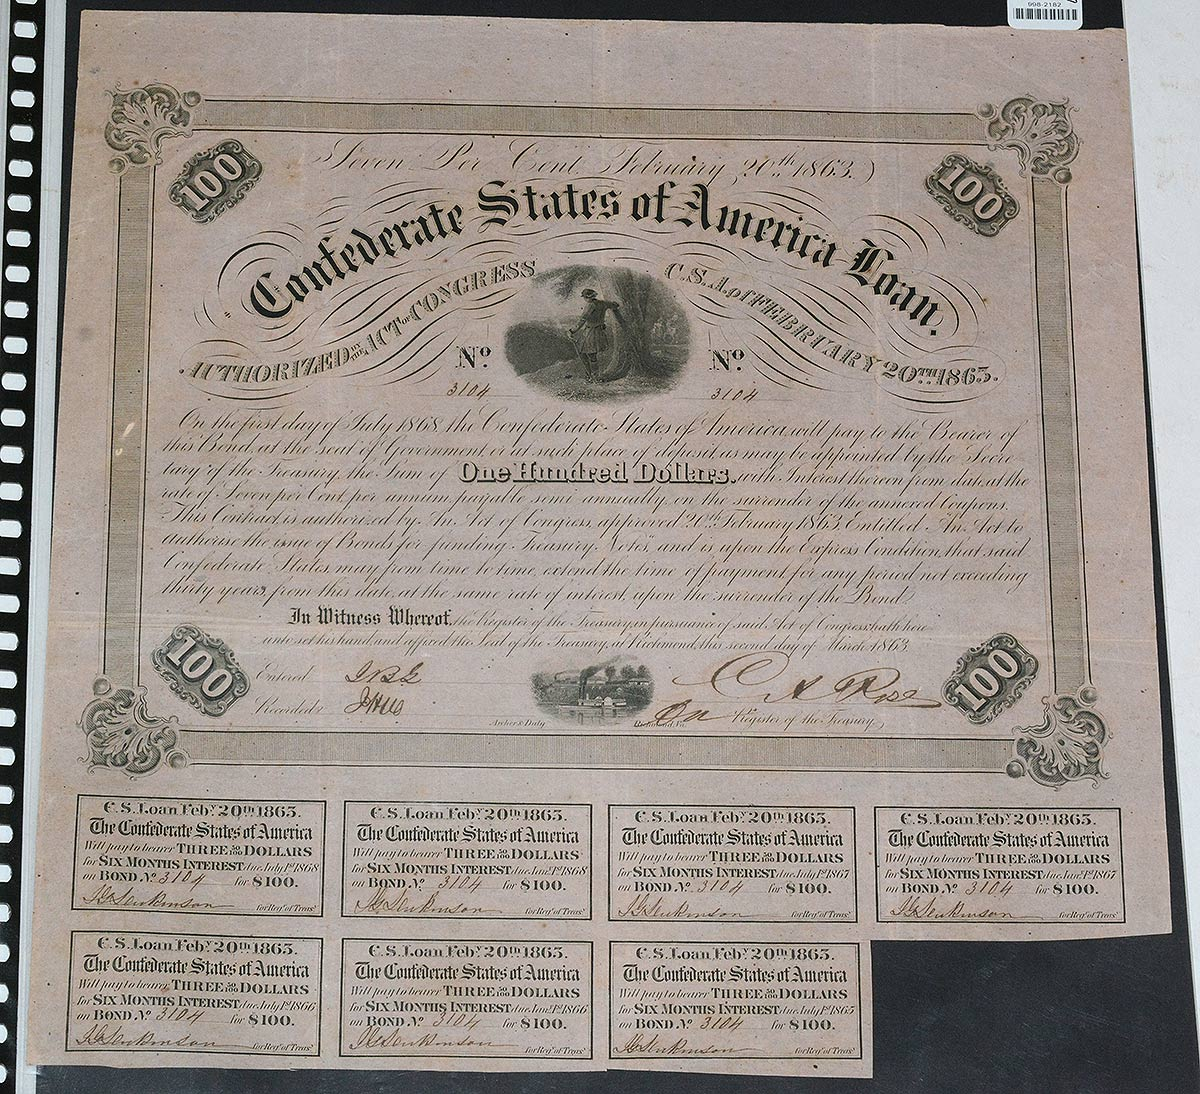 998-2182
Seven Per Cent. February 20th 1863.
100
100
Confederate States of America Loan.
AUTHORIZED BY THE ACT OF CONGRESS C.S.A. of FEBRUARY 20TH 1863.
No. No.
3104 3104
On the first day of July 1868, the Confederate States of America, will pay to the Bearer of
this Bond, at the seat of Government, or at such place of deposit, as may be appointed by the Secre-
tary of the Treasury, the Sum of One Hundred Dollars. with Interest thereon from date, at the
rate of Seven per Cent. per annum, payable semi annually, on the surrender of the annexed Coupons.
This Contract, is authorized by An Act of Congress, approved 20th February 1863 Entitled "An Act to
authorise the issue of Bonds for funding Treasury Notes", and is upon the Express Condition, that said
Confederate States may from time to time, extend the time of payment, for any period not exceeding
thirty years, from this date, at the same rate of interest, upon the surrender of the Bond.
In Witness Whereof, the Register of the Treasury, in pursuance of said Act of Congress, hath here-
unto set his hand, and affixed the Seal of the Treasury, at Richmond, this second day of March 1863.
100
100
Entered
Recorded
C A Rose
Archer & Daly Richmond, Va. Register of the Treasury.
C.S. Loan Feby. 20th 1863.
The Confederate States of America
Will pay to bearer THREE 50/100 DOLLARS
for SIX MONTHS INTEREST due July 1st 1868
on BOND No. 3104 for $100.
for Regr. of Treasy.
C.S. Loan Feby. 20th 1863.
The Confederate States of America
Will pay to bearer THREE 50/100 DOLLARS
for SIX MONTHS INTEREST due Jany. 1st 1868
on BOND No. 3104 for $100.
for Regr. of Treasy.
C.S. Loan Feby. 20th 1863.
The Confederate States of America
Will pay to bearer THREE 50/100 DOLLARS
for SIX MONTHS INTEREST due July 1st 1867
on BOND No. 3104 for $100.
for Regr. of Treasy.
C.S. Loan Feby. 20th 1863.
The Confederate States of America
Will pay to bearer THREE 50/100 DOLLARS
for SIX MONTHS INTEREST due Jany. 1st 1867
on BOND No. 3104 for $100.
for Regr. of Treasy.
C.S. Loan Feby. 20th 1863.
The Confederate States of America
Will pay to bearer THREE 50/100 DOLLARS
for SIX MONTHS INTEREST due July 1st 1866
on BOND No. 3104 for $100.
for Regr. of Treasy.
C.S. Loan Feby. 20th 1863.
The Confederate States of America
Will pay to bearer THREE 50/100 DOLLARS
for SIX MONTHS INTEREST due Jany. 1st 1866
on BOND No. 3104 for $100.
for Regr. of Treasy.
C.S. Loan Feby. 20th 1863.
The Confederate States of America
Will pay to bearer THREE 50/100 DOLLARS
for SIX MONTHS INTEREST due July 1st 1865
on BOND No. 3104 for $100.
for Regr. of Treasy.